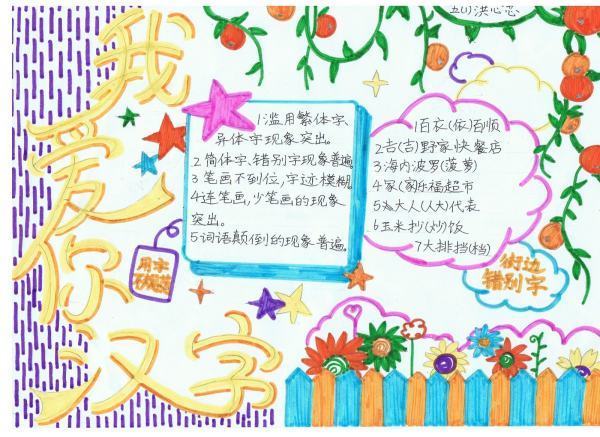 五(1) 洪心
我爱你汉字
1滥用繁体字、
异体字现象突出。
2简体字、错别字现象普遍。
3笔画不到位,字迹模糊。
4连笔画,少笔画的现象
突出。
5词语颠倒的现象普遍。
用字
状况
1百衣(依)百顺
2吉(吉)野家快餐店
3海内波罗(菠萝)
5大人(人大)代表
6玉米抄(炒)饭
7大排挡(档)
街边
错别字